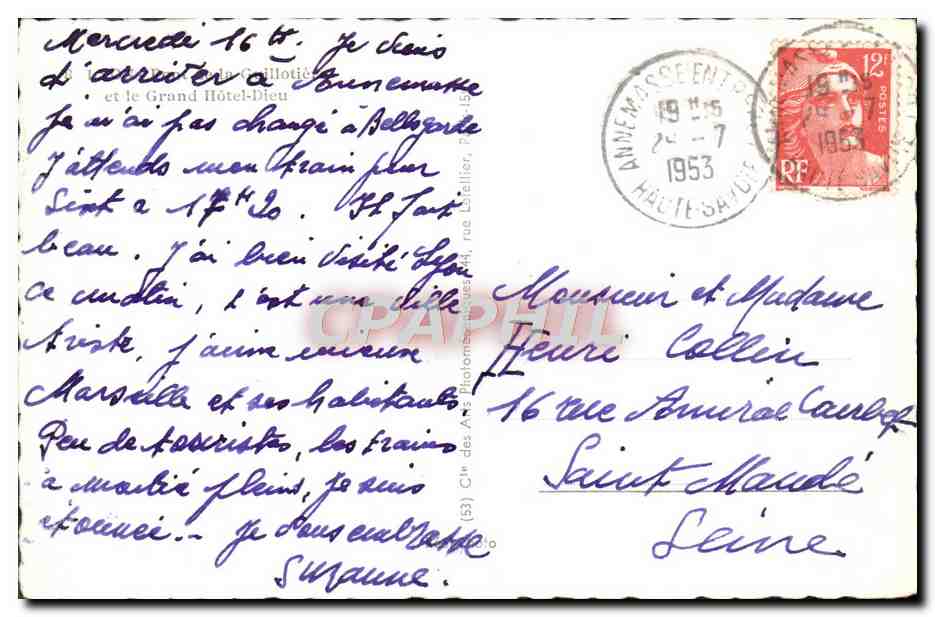 Mercredi 16 H. Je viens
d'arriver à Annemasse
la Guillotière
et le Grand Hôtel-Dieu
Je n'ai pas changé à Bellegarde
J'attends mon train pour
Sixt a 17 H 20. Il fait
beau. J'ai bien visité Lyon
ce matin, c'est une ville
triste, j'aime mieux
Marseille et ses habitants.
Peu de touristes, les trains
à moitié pleins, je suis
étonnée. - Je vous embrasse
Suzanne.
(53) Cie des Arts Photomécaniques, 44, rue Letellier, P
CPAPHIL
ANNEMASSE ENTREPOT
19 H 15
29 - 7
1953
HAUTE-SAVOIE
12F
POSTES
RF
19 H 15
29 - 7
1953
Monsieur et Madame
Henri Collin
16 rue Amiral Courbet
Saint Mandé
Seine